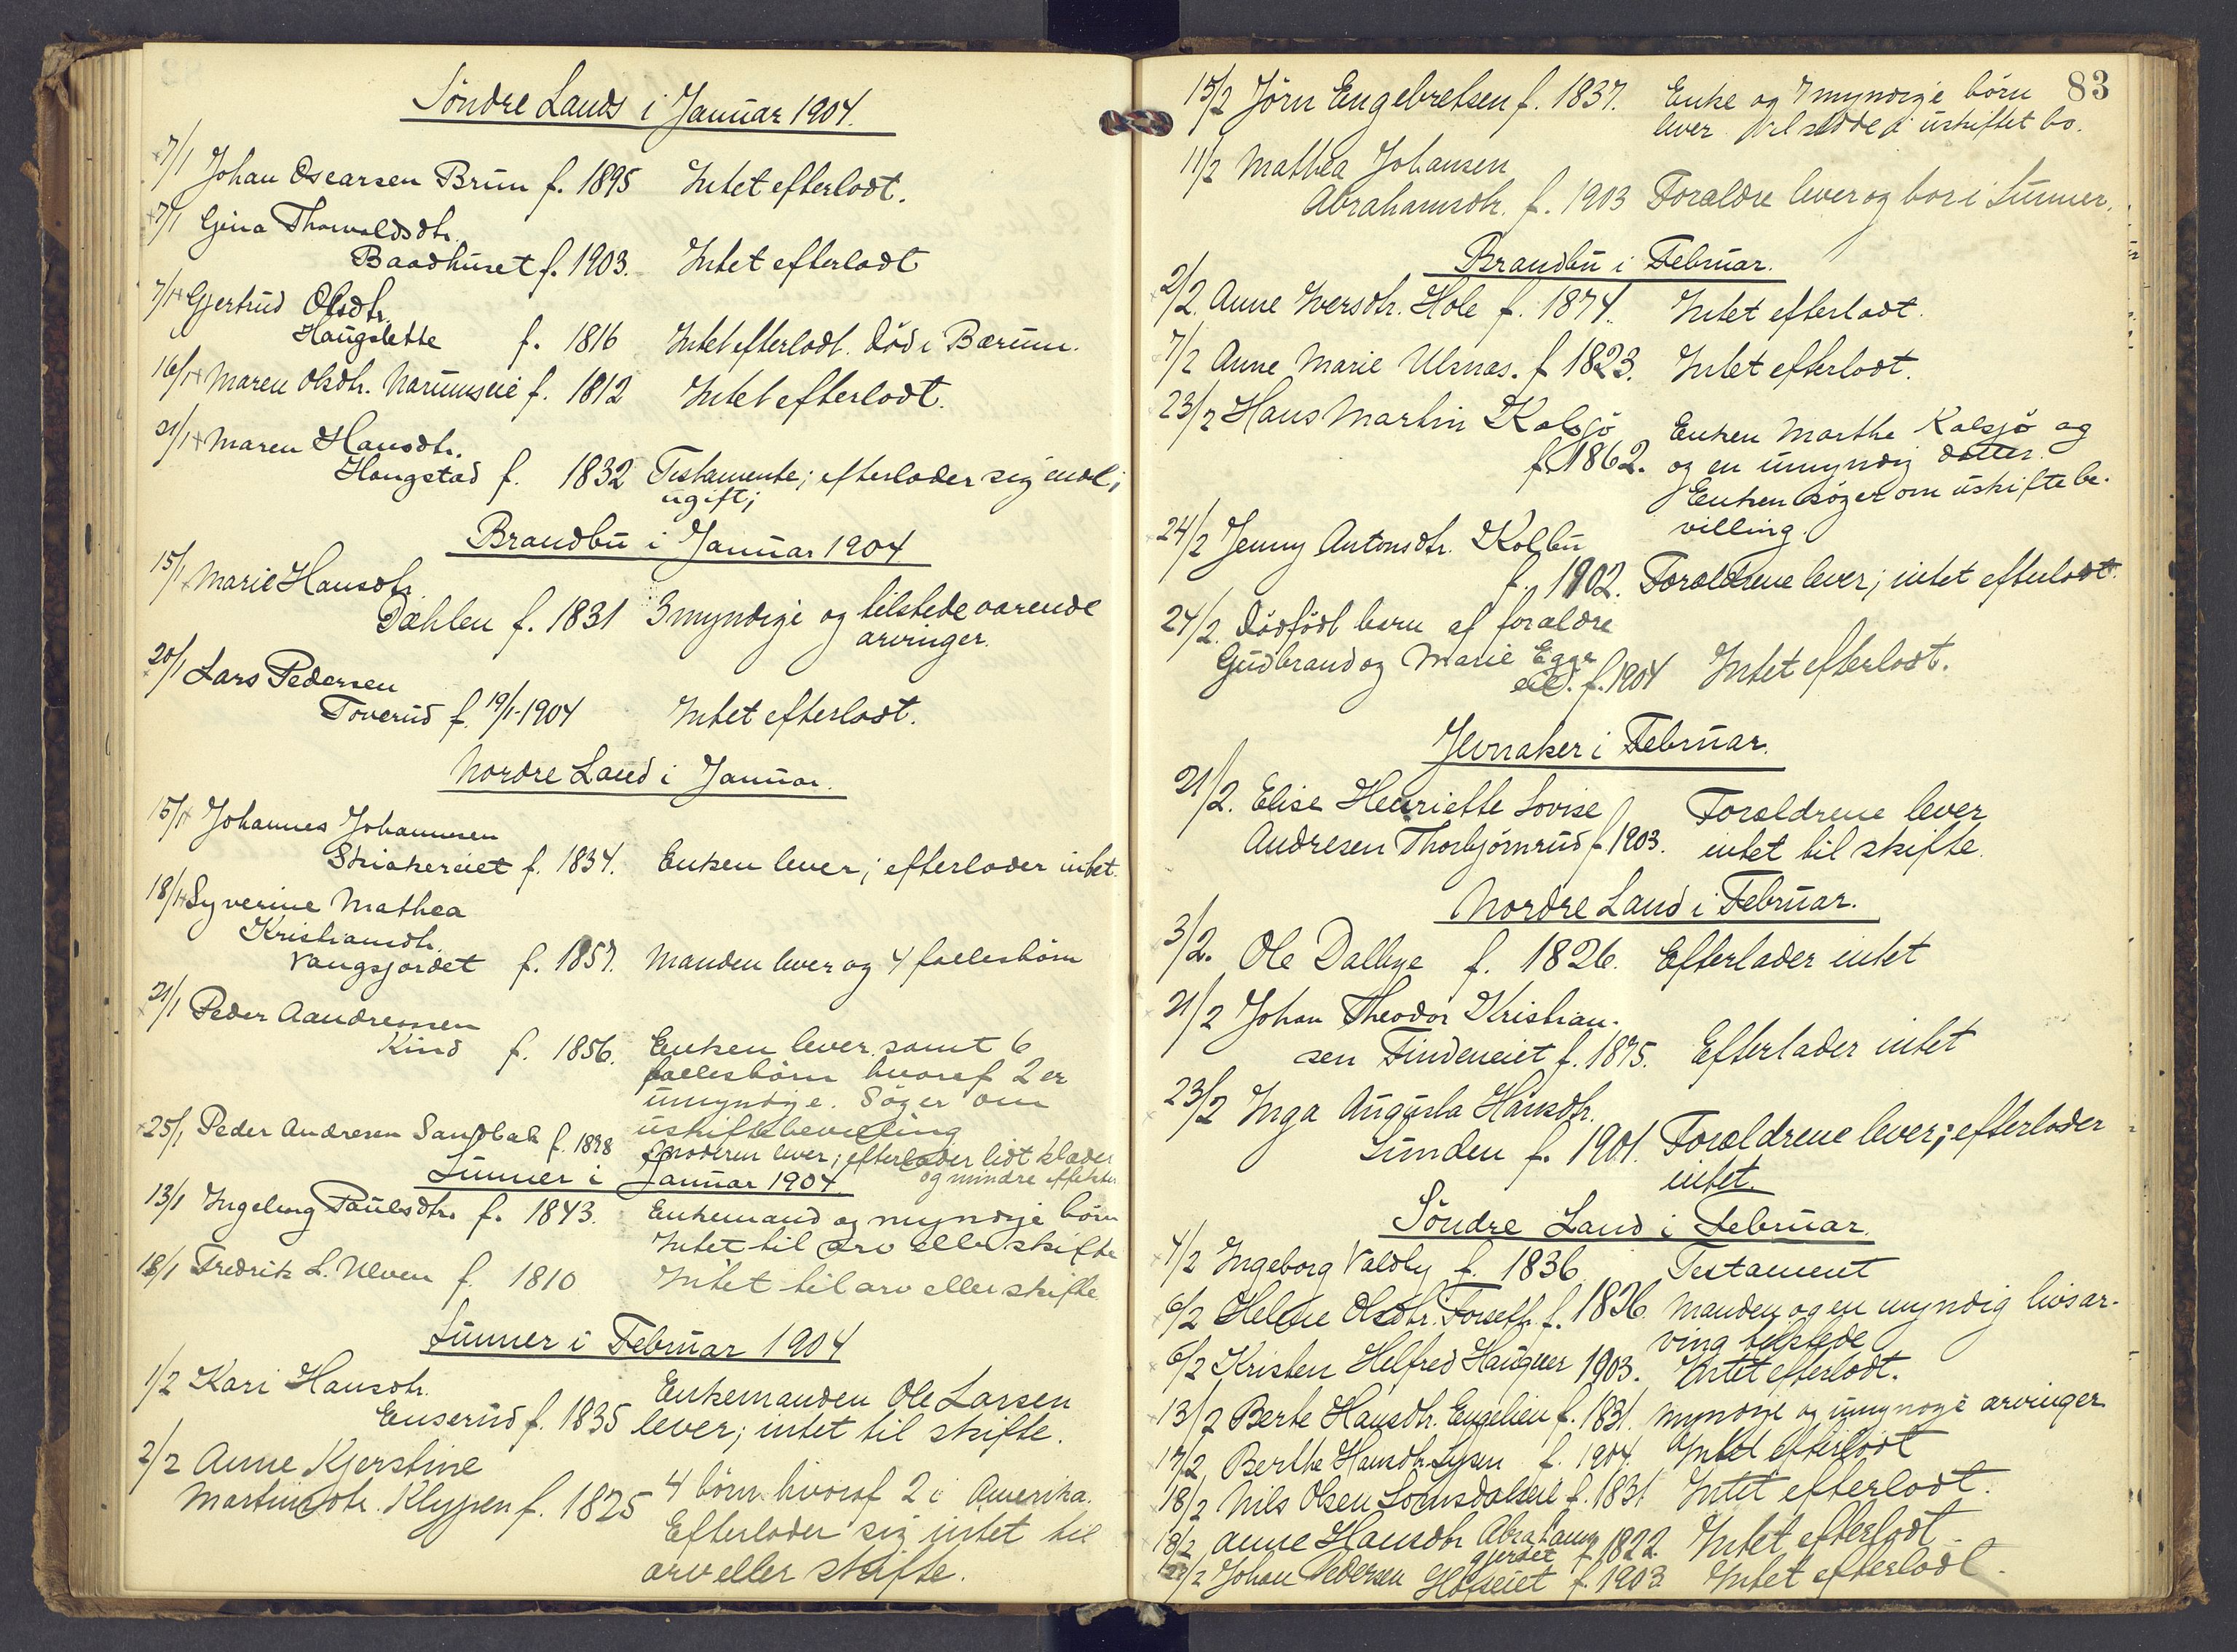 Söndre Lands i Januar 1904.
7/1 Johan Oscarsen Brun f. 1895 Intet efterladt.
7/1 Gina Thorvaldsdtr.
Baadhuset f. 1903. Intet efterladt
7/1 Gjertrud Olsdtr.
Haugslette f. 1816 Intet efterladt. Död i Bærum.
16/1 Maren Olsdtr. Narumseie f. 1812 Intet efterladt.
21/1 Maren Hansdtr.
Hougstad f. 1832 Testamente; efterlader sig endl;
ugift;
Brandbu i Januar 1904
15/1 Marie Hansdtr.
Dæhlen f. 1831 3 myndige og tilstedeværende
arvinger.
20/1 Lars Pedersen
Toverud f. 19/1-1904 Intet efterladt.
Nordre Land i Januar.
15/1 Johannes Johannesen
Skiakereiet f. 1834. Enken lever; efterlader intet.
18/1 Syverine Mathea
Kristiansdtr.
Vangsjordet f. 1857. Manden lever og 4 fællesbörn
21/1 Peder Aandressen
Kind f. 1856. Enken lever samt 6
fællesbörn hvoraf 2 er
umyndige. Söger om
uskiftebevilling
25/1 Peder Andresen Sandbak f. 1898 Moderen lever; efterlader lidt klæder
og mindre effekter
Lunner i Januar 1904.
13/1 Ingeborg Paulsdtr. f. 1843. Enkemand og myndige börn
Intet til arv eller skifte
18/1 Fredrik L. Ulven f. 1810 Intet til arv eller skifte
Lunner i Februar 1904
1/2 Kari Hansdtr. Enkemanden Ole Larsen
Enserud f. 1835 lever; intet til skifte.
2/2 Anne Kjerstine
Martinsdtr. Klypen f. 1825 4 börn hvoraf 2 i Amerika.
Efterlader sig intet til
arv eller skifte.
83
15/2 Jörn Engebretsen f. 1837. Enke og 7 myndige börn
lever. Vil sidde i uskiftet bo.
11/2 Mathea Johansen
Abrahamsdtr. f. 1903 Foraldre lever og bor i Lunner.
Brandbu i Februar.
2/2. Anne Iversdtr. Hole f. 1874. Intet efterladt.
7/2 Anne Marie Ulsnas. f 1823. Intet efterladt.
23/2 Hans Martin Kalsjö Enken Marthe Kalsjö og
f. 1862. og en umyndig datter.
Enken söger om uskiftebe-
villing.
24/2 Jenny Antonsdtr. Kolbu
f. 1902. Foraldrene lever; intet efterladt.
24/2. Dödfödt barn af foraldre
Gudbrand og Marie Egge
eie. f. 1904 Intet efterladt.
Jevnaker i Februar.
21/2. Elise Henriette Lovise Foraldrene lever
Andresen Thorbjörnrud f 1903. intet til skifte.
Nordre Land i Februar.
3/2. Ole Dalbye f. 1826. Efterlader intet
21/2 Johan Theodor Kristian-
sen Findeneiet f. 1875. Efterlader intet
23/2 Inga Augusta Hansdtr.
Lunden f. 1901. Foraldrene lever; efterlader
intet.
Söndre Land i Februar.
4/2 Ingeborg Valdby f. 1836 Testament
6/2 Helene Olsdtr. f. 1836. Manden og en myndig livsar-
ving tilstede
6/2 Kristen Helfred Haugner 1903. Intet efterladt.
13/2 Berte Hansdtr. Engelien f. 1831. myndige og umyndige arvinger
17/2 Berthe Hansdtr. Lysen f. 1904. Intet efterladt
18/2 Nils Olsen Lomsdaleie f. 1831 Intet efterladt.
18/2 Anne Hansdtr Abrahams
gjerdet f 1822. Intet efterladt
/2 Johan Pedersen Hofseiet f. 1903 Intet efterladt.